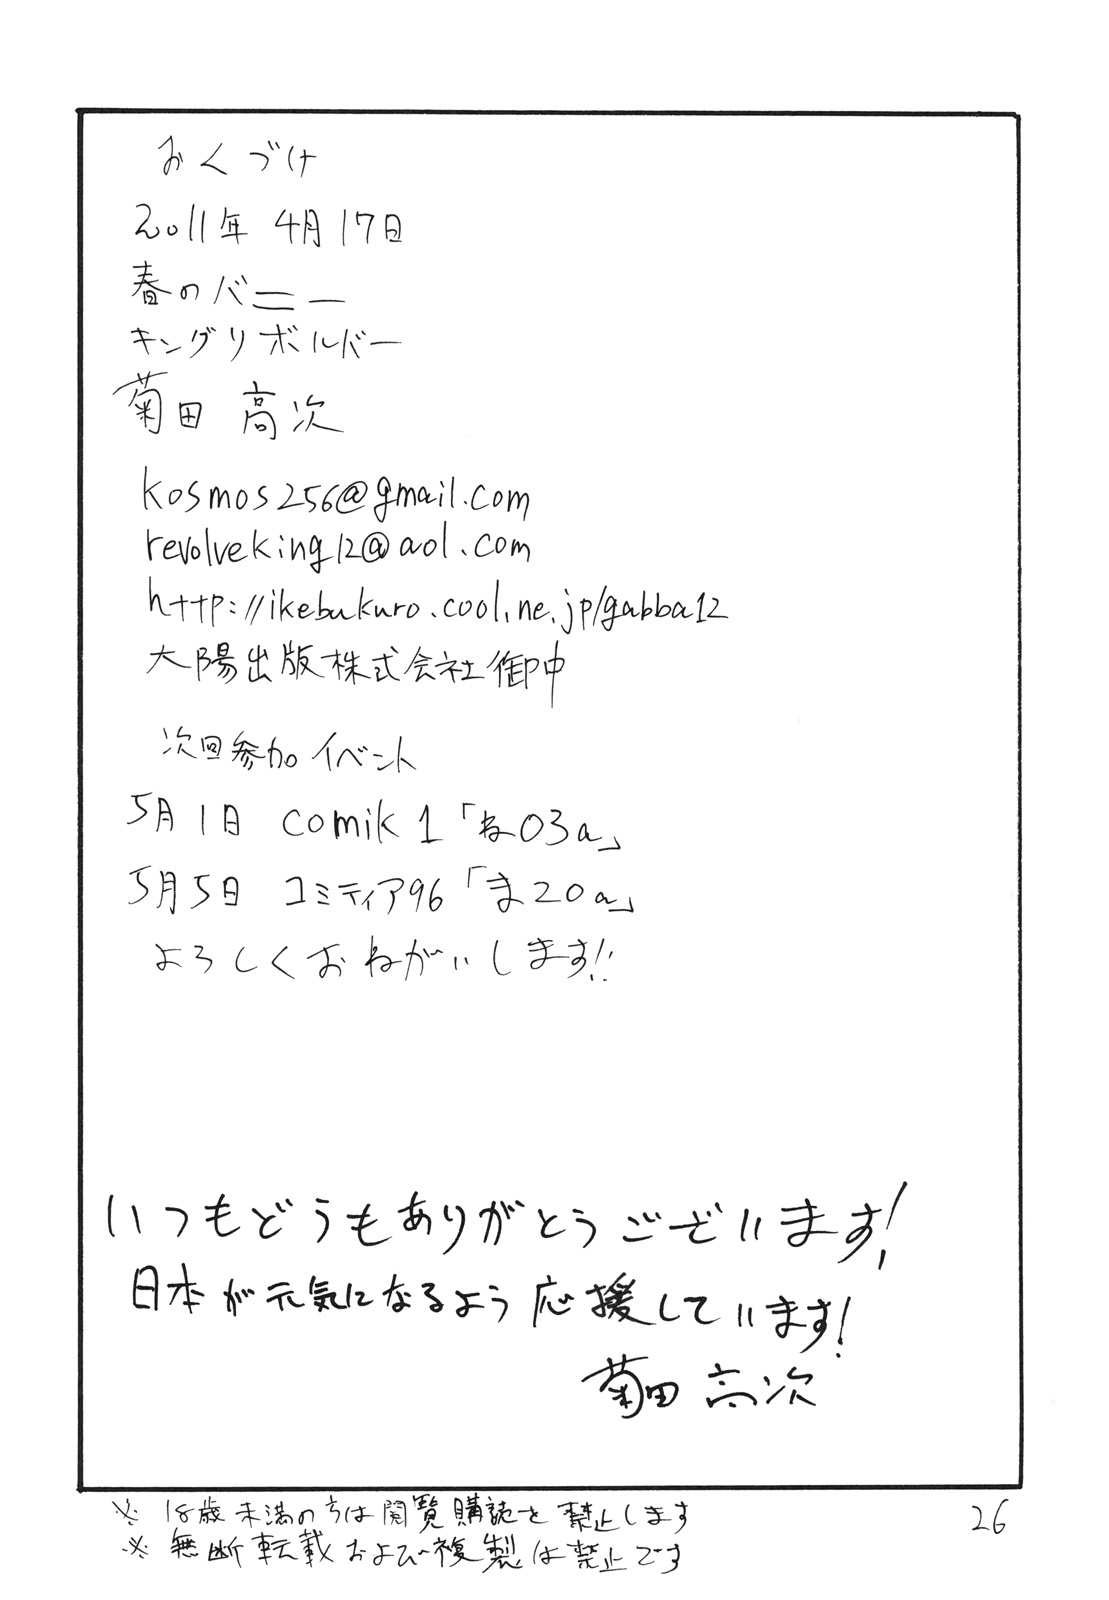 おくづけ
2011年 4月17日
春のバニー
キングリボルバー
菊田 高次
kosmos256@gmail.com
revolveking12@aol.com
http://ikebukuro.cool.ne.jp/gabba12
大陽出版株式会社御中
次回参加イベント
5月1日 comik1「ね03a」
5月5日 コミティア96「ま20a」
よろしくおねがいします!!
いつもどうもありがとうございます!
日本が元気になるよう応援しています!
菊田 高次
※ 18歳未満の方は閲覧購読を禁止します
※ 無断転載および複製は禁止です
26